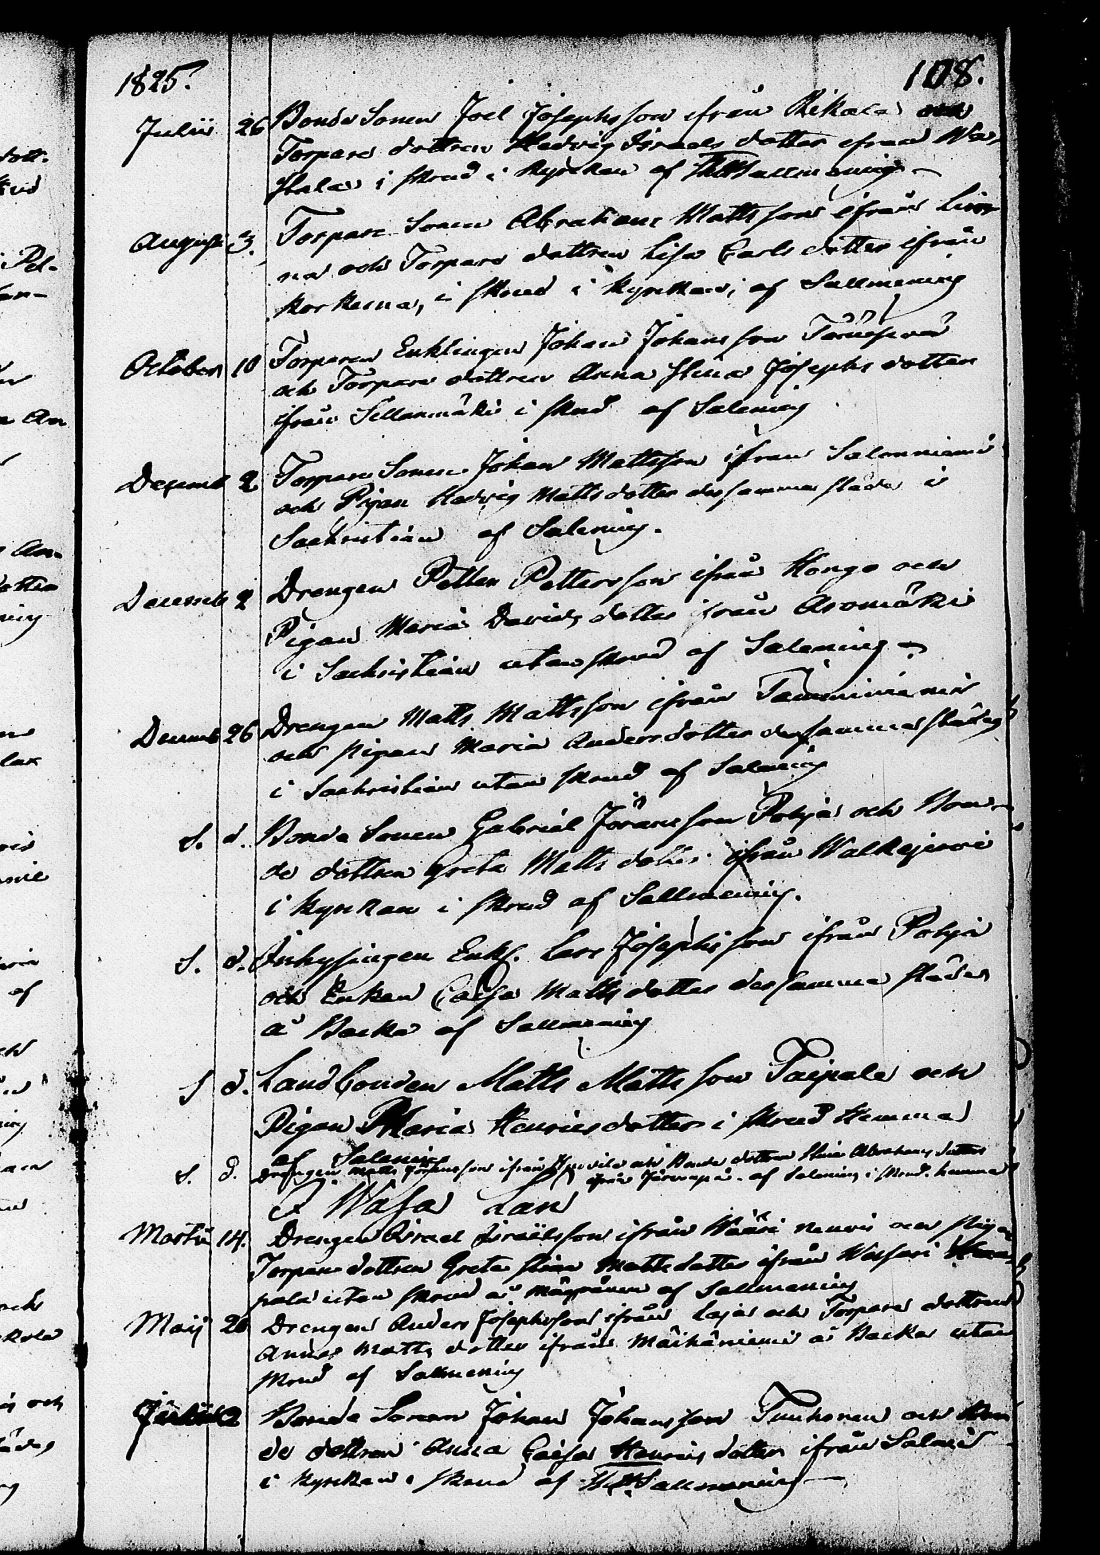 1825. 108.
Julii 26 Bonde Sonen Joel Josephsson ifrån Rikala och
Torpare dottren Hedvig Israels dotter ifrån
i skrud i Kyrckan af Sallmening
Augusti 3. Torpare Sonen Abraham Mattsson ifrån
na och Torpare dottren Lisa Carls dotter ifrån
Korkema, i skrud i Kyrckan, af Sallmening
October 10 Torparen Enklingen Johan Johansson
och Torpare dottren Anna Stina Josephs dotter
ifrån Sillanmäki i skrud af Salening
Decemb 2 Torpare Sonen Johan Mattsson ifrån Salonniemi
och Pigan Hedvig Matts dotter dessamma städes i
Sachristian af Salening.
Decemb 2 Drengen Petter Pettersson ifrån Hongo och
Pigan Maria Davids dotter ifrån Aromäki
i Sachristian utan skrud af Salening
Decemb 26 Drengen Matts Mattsson ifrån Tamminiemi
och Pigan Maria Anders dotter dessamma städes
i Sachristian utan skrud af Salening
S. d. Bonde Sonen Gabriel Jöransson Pohja och Bon-
de dottren Greta Matts dotter ifrån Walkejervi
i Kyrckan i skrud af Sallmening.
S. d. Inhysingen Enkl. Lars Josephsson ifrån Pohja
och Enkan Caisa Matts dotter dessamma städes
å Backa af Sallmening
S d. Landbonden Matts Mattsson Taipale och
Pigan Maria Henrics dotter i skrud hemma
af Salening
S. d. Drengen Matts Johansson ifrån och Bonde dottren Stina Abrahams dotter
ifrån af Salening i skrud. hemma
I Wasa Län
Martii 14. Drengen Israel Israelsson ifrån och Pigan
Torpare dottren Greta Stina Matts dotter ifrån
pala utan skrud å af Sallmening
Maij 26 Drengen Anders Josephsson ifrån och Torpare dottren
Anna Matts dotter ifrån å Backa utan
skrud af Sallmening
2 Bonde Sonen Johan Johansson Tunkonen och Bon
de dottren Anna Caisa Henrics dotter ifrån
i Kyrckan i skrud af Sallmening